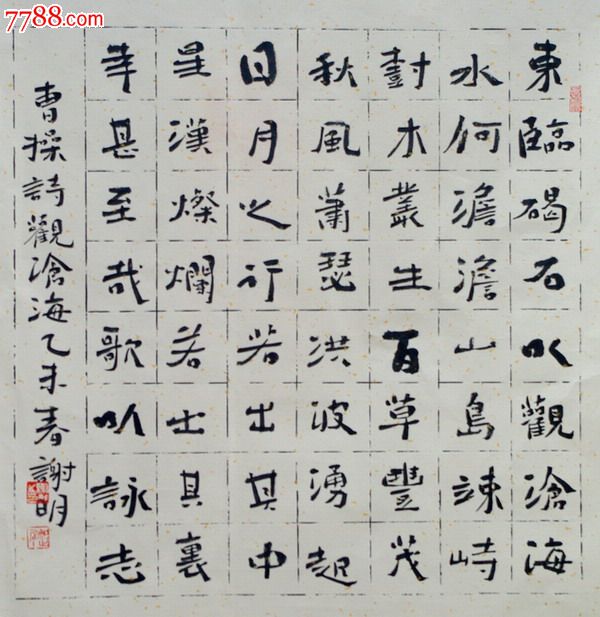 7788.com
東臨碣石以觀滄海
水何澹澹山島竦峙
樹木叢生百草豐茂
秋風蕭瑟洪波湧起
日月之行若出其中
星漢燦爛若出其裏
幸甚至哉歌以詠志
曹操詩觀滄海乙未春謝明